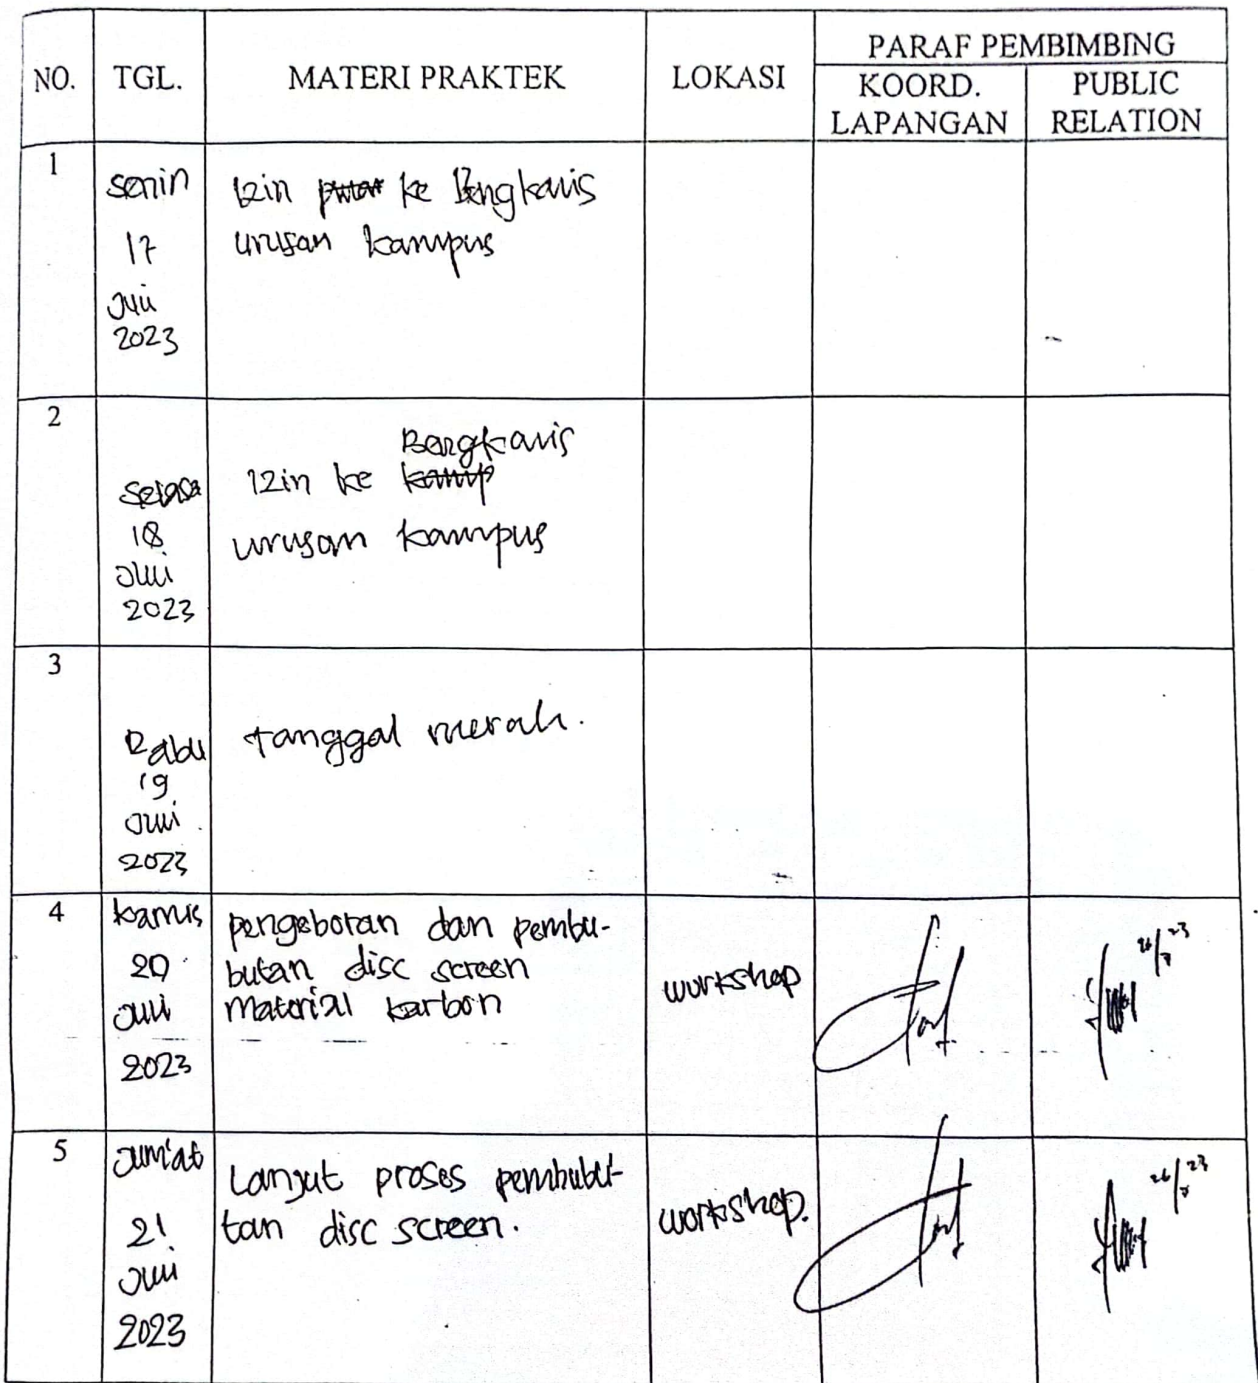 NO.
TGL.
MATERI PRAKTEK
LOKASI
PARAF PEMBIMBING
KOORD.
LAPANGAN
PUBLIC
RELATION
1
senin
17
Juli
2023
Izin ke Bengkalis
urusan kampus
2
Selasa
18
Juli
2023
Bengkalis
Izin ke kamp
urusan kampus
3
Rabu
19
Juli
2023
tanggal merah.
4
kamis
20
Juli
2023
pengeboran dan pembu-
butan disc screen
Material karbon
workshop
26/7 23
5
Jum'at
21
Juli
2023
Lanjut proses pembubu-
tan disc screen.
workshop.
26/7 23